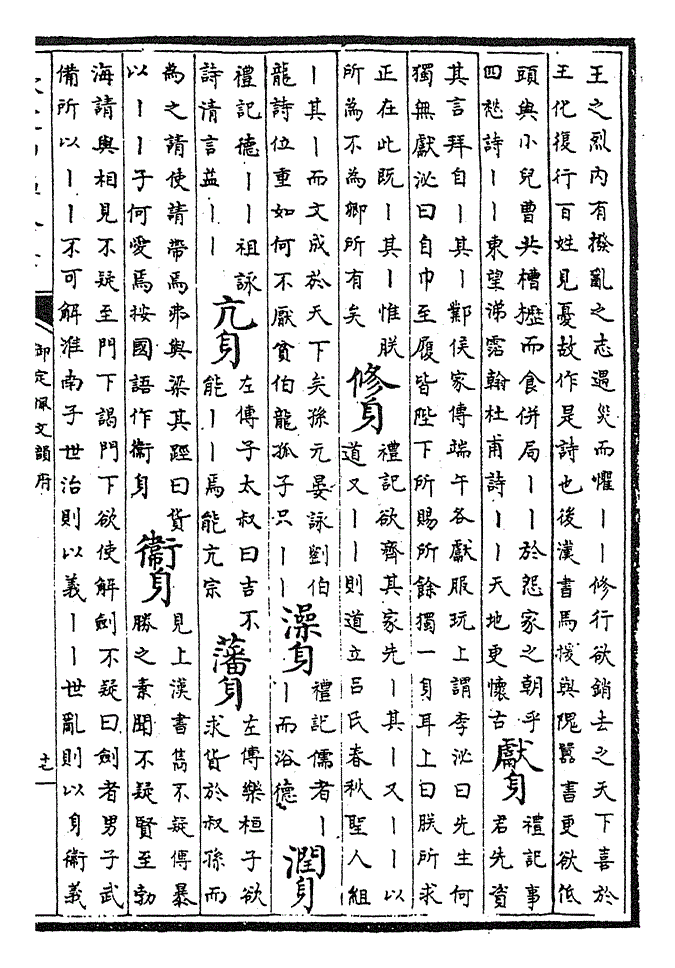 王之烈内有撥亂之志遇災而懼丨丨修行欲銷去之天下喜於
王化復行百姓見憂故作是詩也後漢書馬援與隗囂書更欲低
頭與小兒曹共槽櫪而食併局丨丨於怨家之朝乎
四愁詩丨丨東望涕霑翰杜甫詩丨丨天地更懷古
獻身
禮記事
君先資
其言拜自丨其丨鄴侯家傳端午各獻服玩上謂李泌曰先生何
獨無獻泌曰自巾至履皆陛下所賜所餘獨一身耳上曰朕所求
正在此既丨其丨惟朕
所為不為卿所有矣
修身
禮記欲齊其家先丨其丨又丨丨以
道又丨丨則道立吕氏春秋聖人組
丨其丨而文成於天下矣孫元晏詠劉伯
龍詩位重如何不厭貧伯龍孤子只丨丨
澡身
禮記儒者丨
丨而浴德
潤身
禮記德丨丨祖詠
詩清言益丨丨
亢身
左傳子太叔曰吉不
能丨丨焉能亢宗
藩身
左傳樂桓子欲
求貨於叔孫而
為之請使請帶焉弗與梁其踁曰貨
以丨丨子何愛焉按國語作衞身
衞身
見上漢書雋不疑傳暴
勝之素聞不疑賢至勃
海請與相見不疑至門下謁門下欲使解劍不疑曰劍者男子武
備所以丨丨不可解淮南子世治則以義丨丨世亂則以身衞義
御定佩文韻府